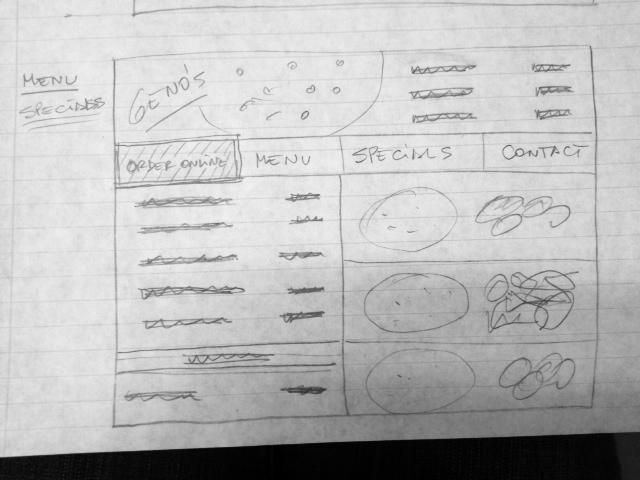 MENU
SPECIALS
GENO'S
ORDER ONLINE
MENU
SPECIALS
CONTACT